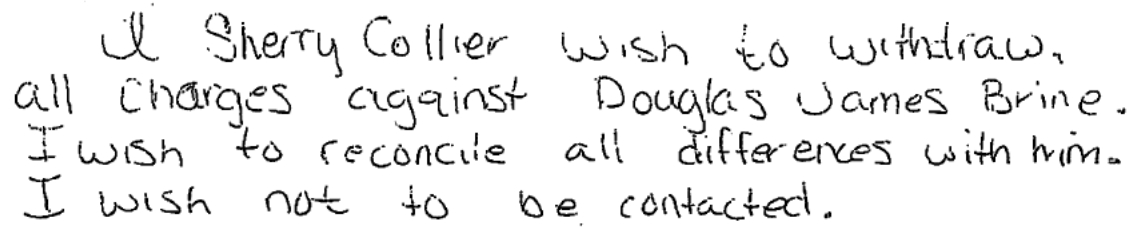 I Sherry Collier wish to withdraw.
all charges against Douglas James Brine.
I wish to reconcile all differences with him.
I wish not to be contacted.